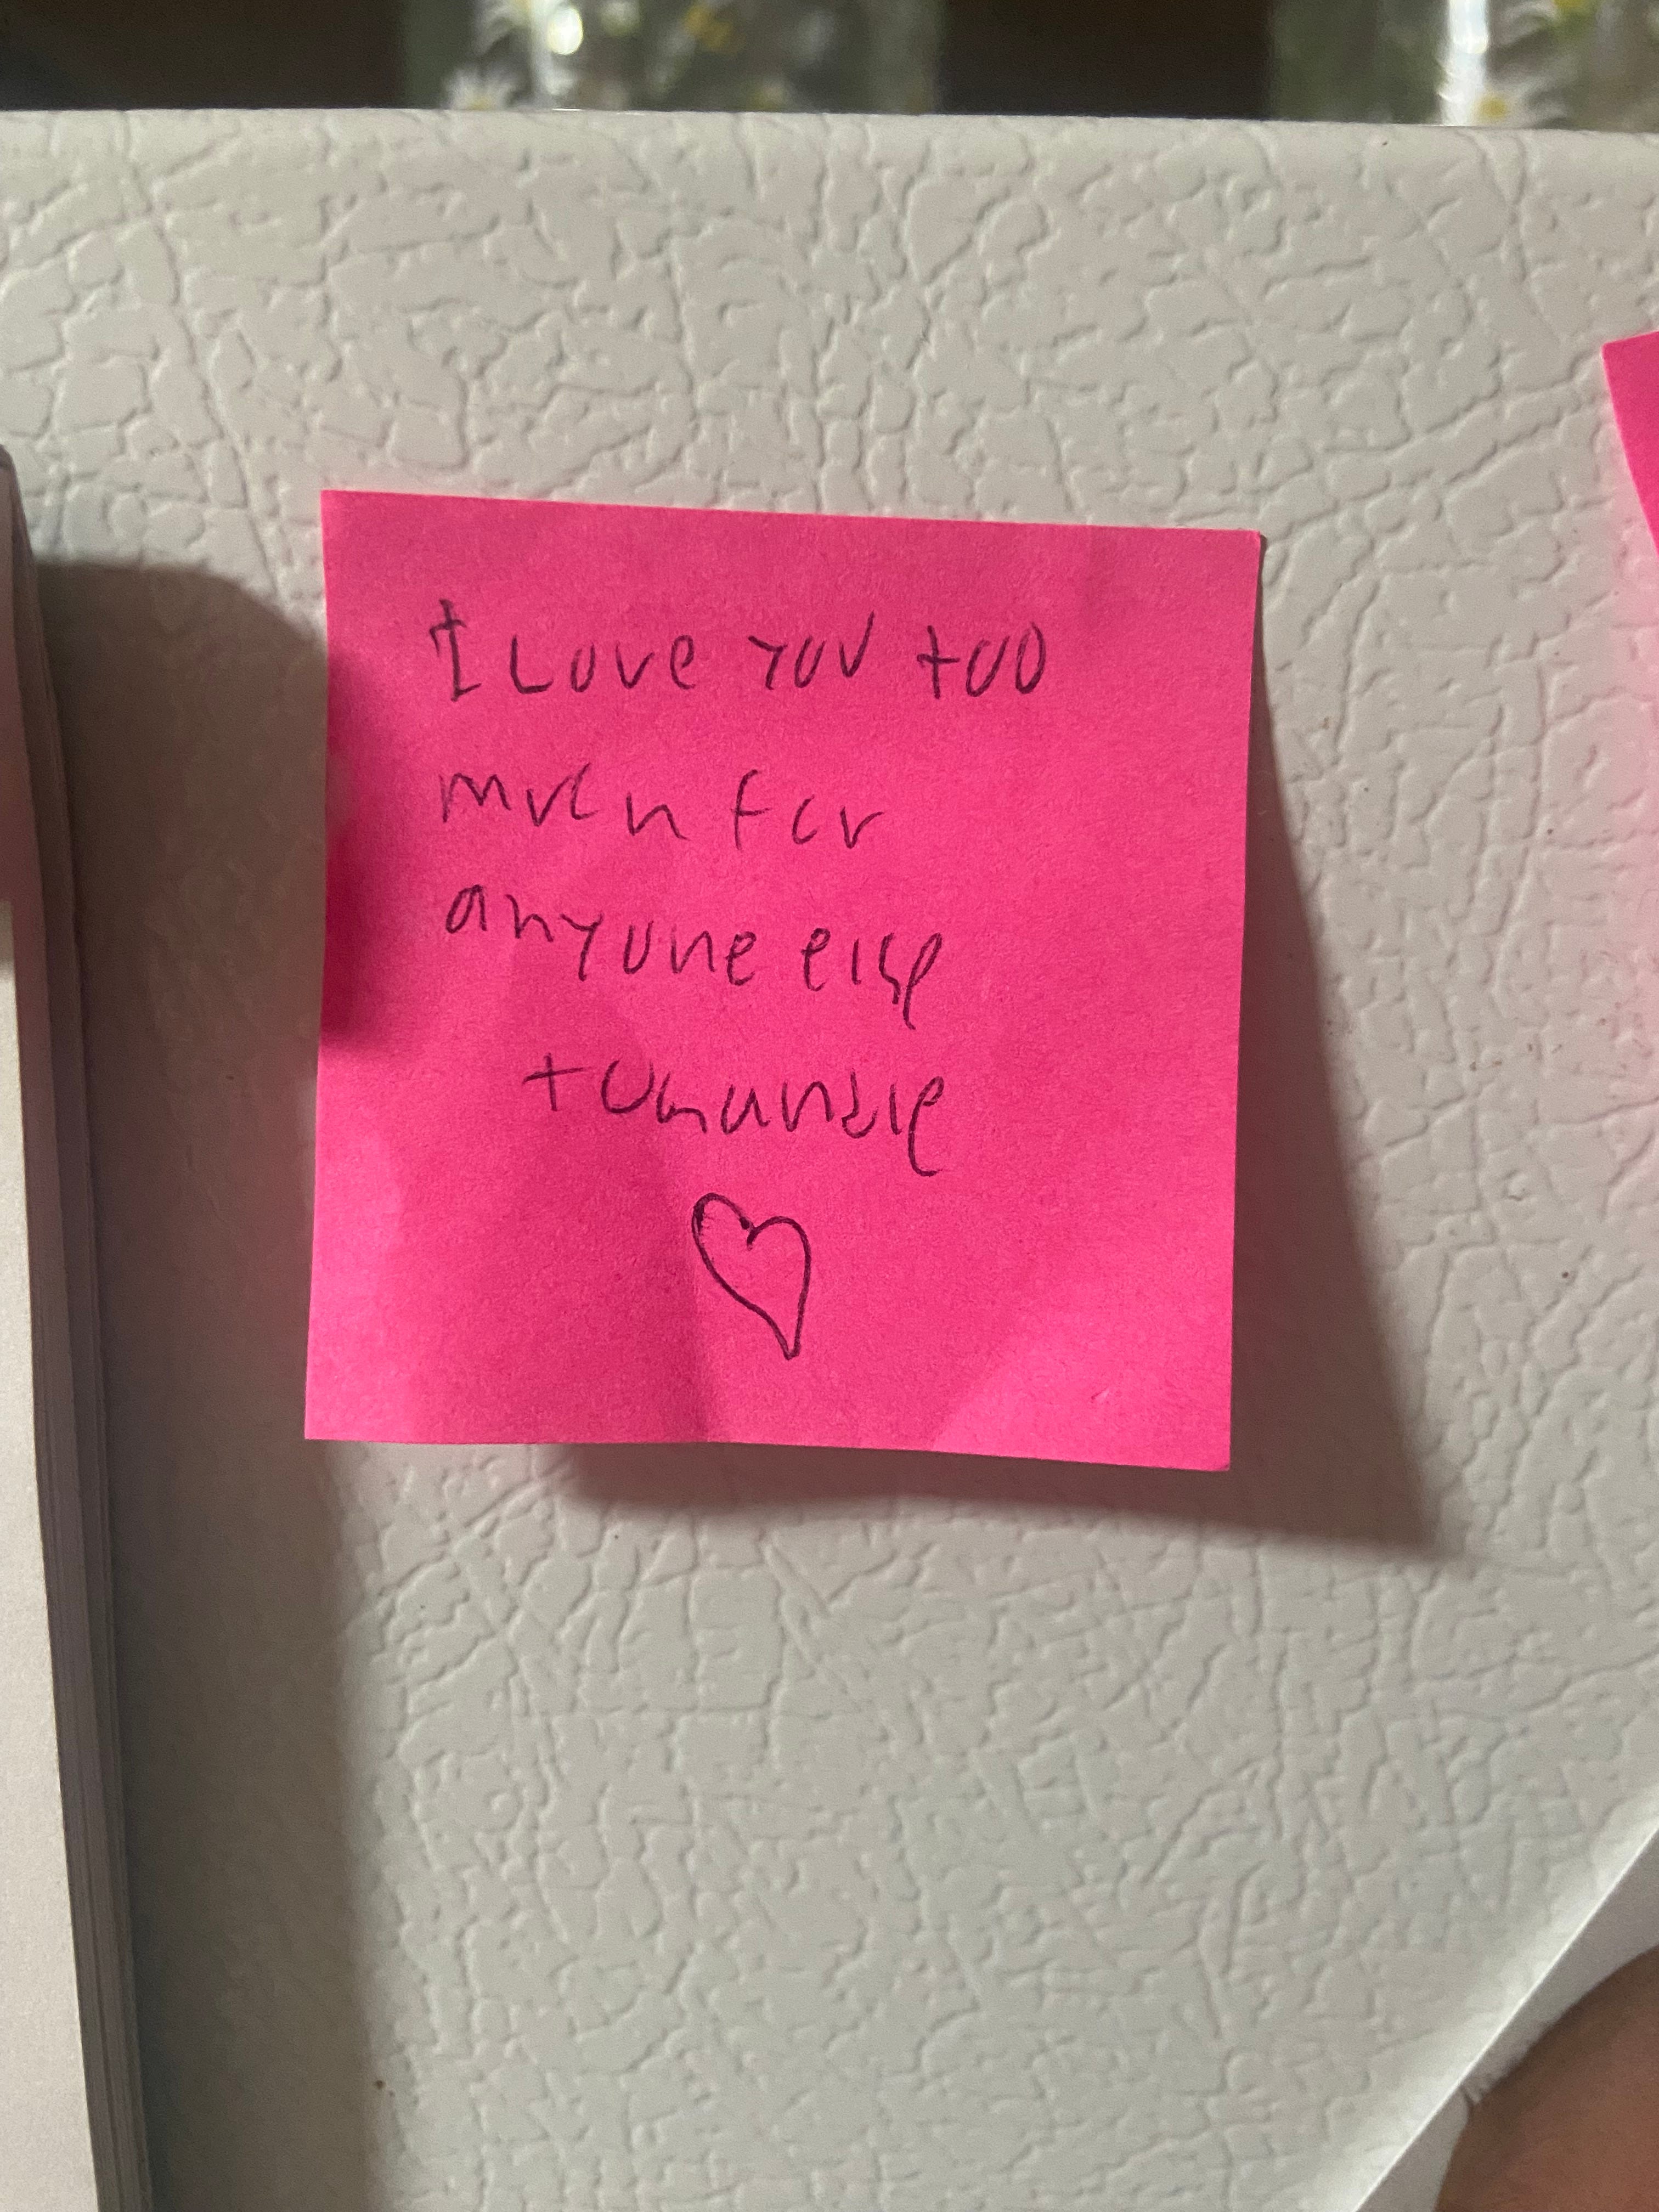 I Love you too
much for
anyone else
to handle